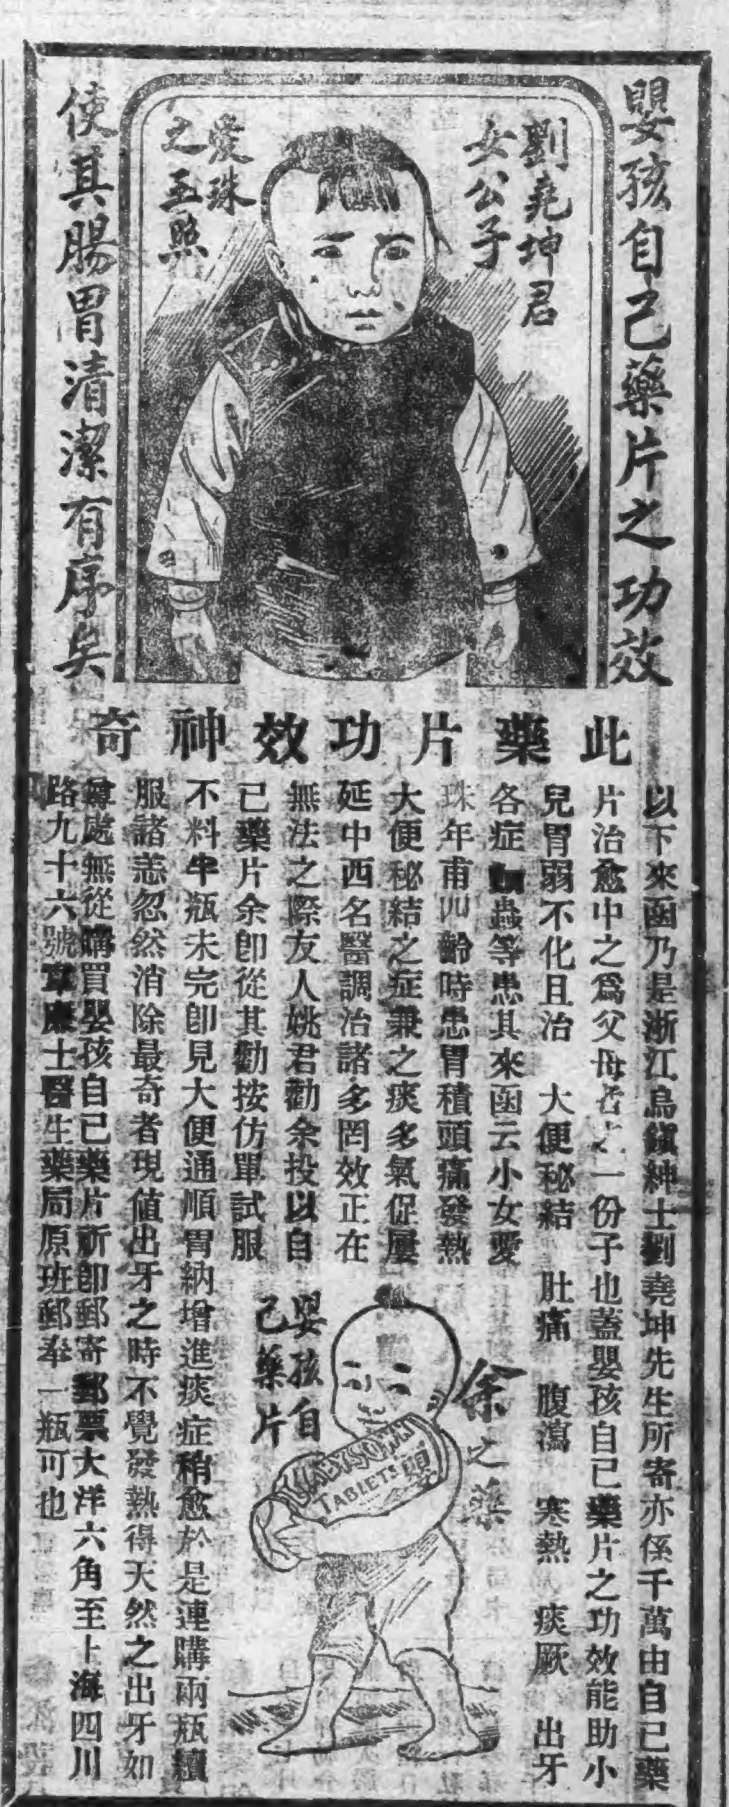 嬰孩自己藥片之功效
使其腸胃清潔有序矣
劉堯坤君
女公子
愛珠
之玉照
此藥片功效神奇
以下來函乃是浙江烏鎮紳士劉堯坤先生所寄亦係千萬由自己藥
片治愈中之爲父母者之一份子也蓋嬰孩自己藥片之功效能助小
兒胃弱不化且治 大便秘結 肚痛 腹瀉 寒熱 痰厥 出牙
各症 蟲等患其來函云小女愛
珠年甫四齡時患胃積頭痛發熱
大便秘結之症兼之痰多氣促屢
延中西名醫調治諸多罔效正在
無法之際友人姚君勸余投以自
己藥片余卽從其勸按仿單試服
不料半瓶未完卽見大便通順胃納增進痰症稍愈於是連購兩瓶續
服諸恙忽然消除最奇者現值出牙之時不覺發熱得天然之出牙如
尊處無從購買嬰孩自己藥片祈卽郵寄郵票大洋六角至上海四川
路九十六號韋廉士醫生藥局原班郵奉一瓶可也
余之藥
嬰孩自
己藥片
BABY'S OWN
TABLETS